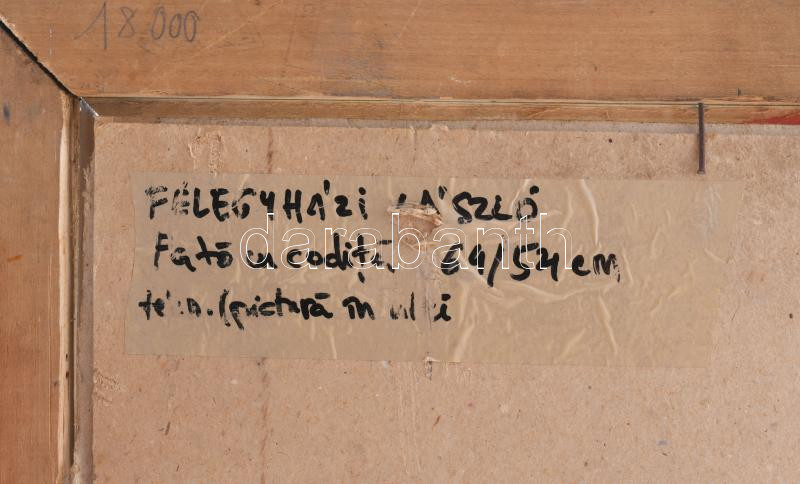 18.000
FÉLEGYHÁZI LÁSZLÓ
Fată cu codiță 64/54 cm
tehn. (pictură în ulei
darabanth